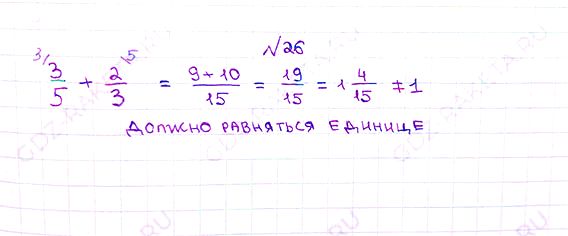 №26
3/5 + 2/3 = 9+10/15 = 19/15 = 1 4/15 ≠ 1
ДОЛЖНО РАВНЯТЬСЯ ЕДИНИЦЕ